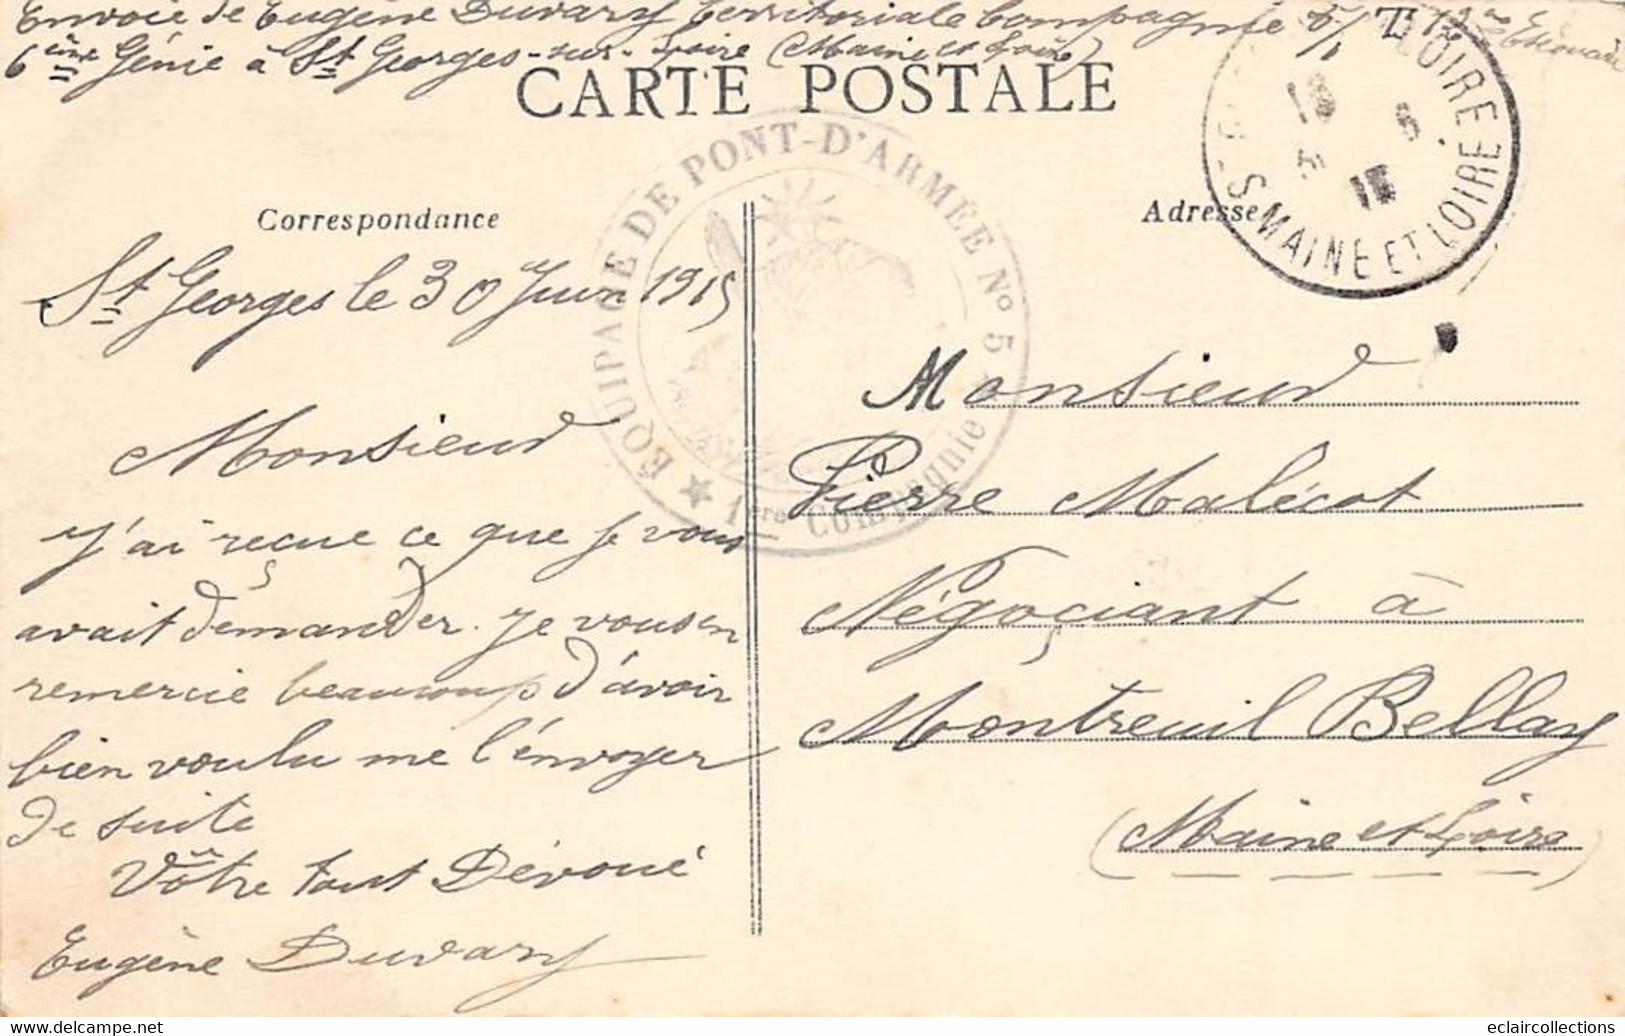 Envoie de Eugène Duvary Territoriale Compagnie 5/T
6ème Génie à St Georges-sur-Loire (Maine et Loire)
CARTE POSTALE
Correspondance
Adresse
ÉQUIPAGE DE PONT-D'ARMÉE No 5
1ère Compagnie
LOIRE
MAINE ET LOIRE
St Georges le 30 Juin 1915
Monsieur
J'ai reçue ce que je vous
avait demander. Je vous en
remercie beaucoup d'avoir
bien voulu me l'énvoyer
de suite
Vôtre tout Dévoué
Eugène Duvary
Monsieur
Pierre Malécot
Négoçiant à
Montreuil Bellay
(Maine et Loire)
www.eclaircollections.delcampe.net
eclaircollections